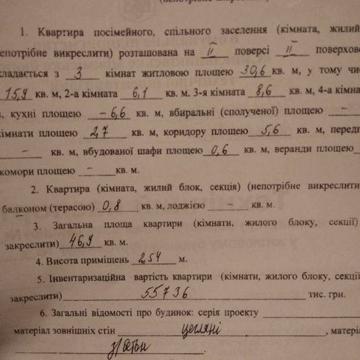 1. Квартира посімейного, спільного заселення (кімната, жилий
непотрібне викреслити) розташована на II поверсі II поверхово
складається з 3 кімнат житловою площею 30,6 кв. м, у тому чис
15,9 кв. м, 2-а кімната 6,1 кв. м. 3-я кімната 8,6 кв. м, 4-а кімна
, кухні площею – 6,6 кв. м, вбиральні (сполученої) площею –
кімнати площею 2,7 кв. м, коридору площею 5,6 кв. м, перед
– кв. м, вбудованої шафи площею 0,6 кв. м, веранди площею
комори площею – кв. м.
2. Квартира (кімната, жилий блок, секція) (непотрібне викреслити
балконом (терасою) 0,8 кв. м, лоджією – кв. м.
3. Загальна площа квартири (кімнати, жилого блоку, секції)
закреслити) 46,9 кв. м.
4. Висота приміщень 2,54 м.
5. Інвентаризаційна вартість квартири (кімнати, жилого блоку, секції
закреслити) 55736 тис. грн.
6. Загальні відомості про будинок: серія проекту
матеріал зовнішніх стін цегляні , матеріа
з/бетон